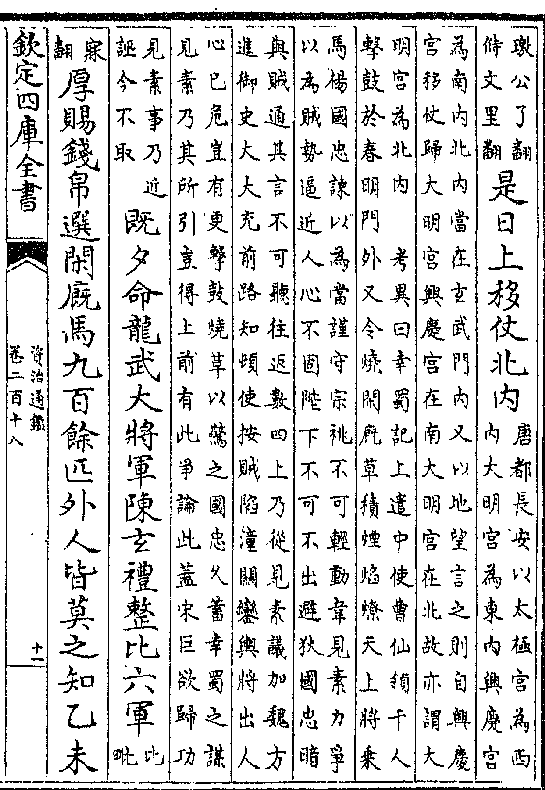 璬公了翻
偫丈里翻
是日上移仗北内
唐都長安以太極宮為西
内大明宮為東内興慶宮
為南内北内當在玄武門内又以地望言之則自興慶
宮移仗歸大明宮興慶宮在南大明宮在北故亦謂大
明宮為北内　考異曰幸蜀記上遣中使曹仙領千人
擊鼓於春明門外又令燒閑廐草積煙焰燎天上將乘
馬楊國忠諫以為當謹守宗祧不可輕動韋見素力爭
以為賊勢逼近人心不固陛下不可不出避狄國忠暗
與賊通其言不可聽往返數四上乃從見素議加魏方
進御史大夫充前路知頓使按賊陷潼關鑾輿將出人
心已危豈有更擊鼓燒草以驚之國忠久蓄幸蜀之謀
見素乃其所引豈得上前有此爭論此蓋宋巨欲歸功
見素事乃近
誣今不取
既夕命龍武大將軍陳玄禮整比六軍
比
毗
寐
翻
厚賜錢帛選閑廐馬九百餘匹外人皆莫之知乙未
欽定四庫全書
資治通鑑
卷二百十八
十一